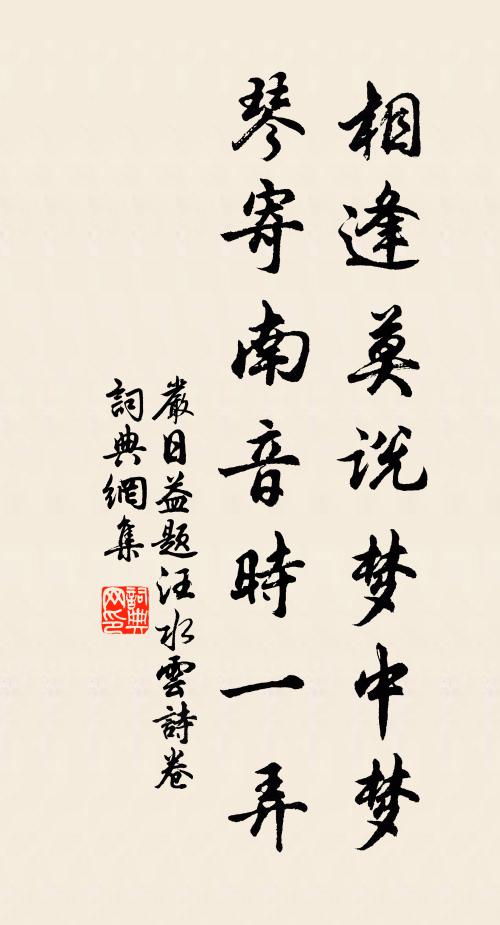 相逢莫说梦中梦
琴寄南音時一弄
嚴日益题汪水雲詩卷
詞典網集
詞典网印